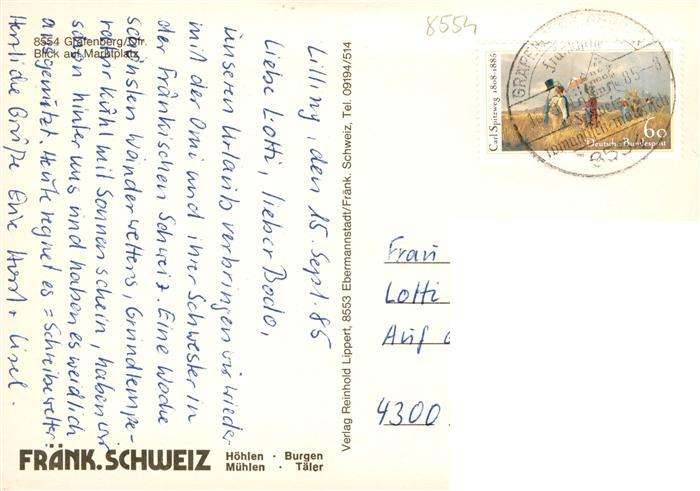 8554 Gräfenberg/Ofr.
Blick auf Marktplatz
Lilling, den 15. Sept. 85
Liebe Lotti, lieber Bodo,
unseren Urlaub verbringen wir wieder
mit der Omi und ihrer Schwester in
der Fränkischen Schweiz. Eine Woche
schönsten Wanderwetters, Grundtempe-
ratur kühl mit Sonnenschein, haben wir
schon hinter uns und haben es weidlich
ausgenützt. Heute regnet es = Schreibewetter.
Herzliche Grüße Eure Horst + Lisel.
FRÄNK. SCHWEIZ
Höhlen · Burgen
Mühlen · Täler
Verlag Reinhold Lippert, 8553 Ebermannstadt/Fränk. Schweiz, Tel. 09194/514
8554
Carl Spitzweg 1808-1885
60
Deutsche Bundespost
Frau
Lotti
Auf
4300